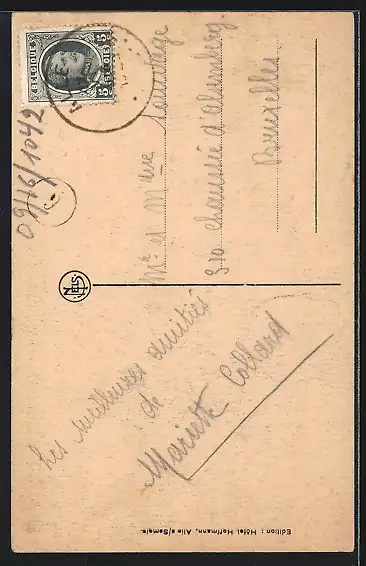 BELGIQUE
BELGIË
5c 5c
09/16/1042
Mr et Mme
310 chaussée d'Alsemberg
Bruxelles
NELS
Les meilleures amitiés
de
Mariette Collard
Edition : Hôtel Hoffmann, Alle s/Semois.